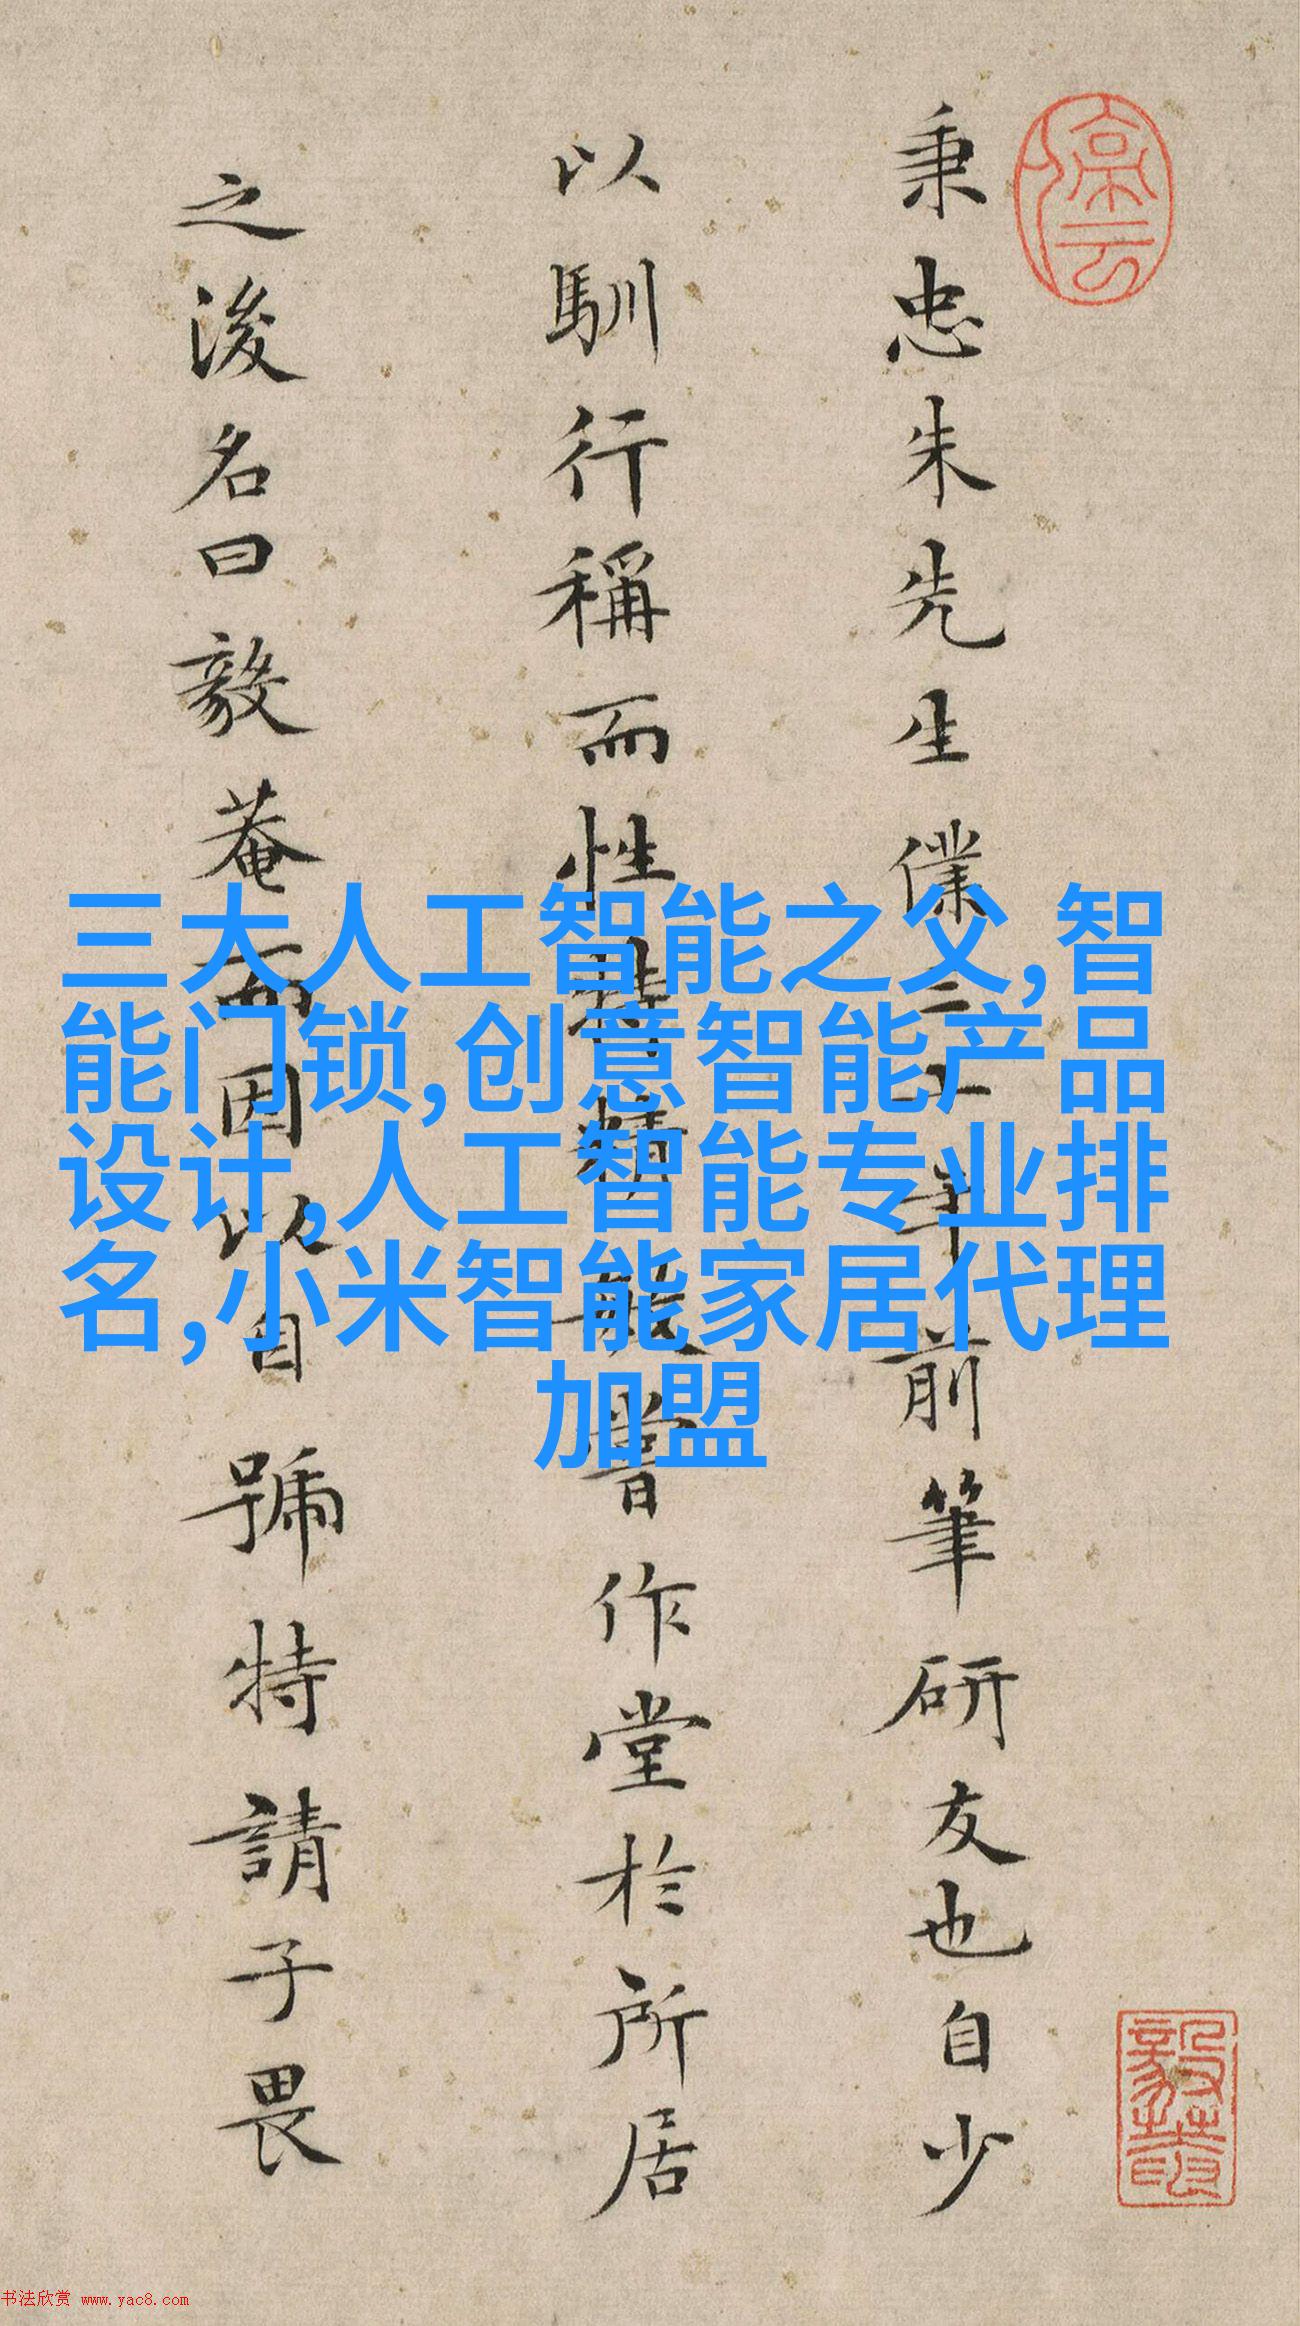 秉忠朱先生僕二十年前筆研友也自少
以馴行稱而性特精敏嘗作堂於所居
之後名曰毅菴而因以自號特請子畏
三大人工智能之父,智
能门锁,创意智能产品
设计,人工智能专业排
名,小米智能家居代理
加盟
书法欣赏 www.yac8.com